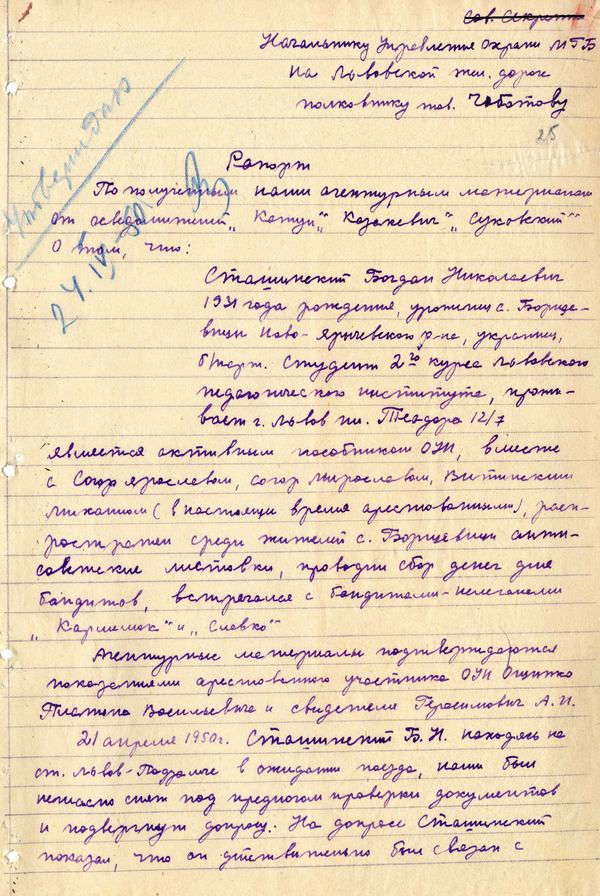 Сов. Секретно
Начальнику Управления охраны МГБ
на Львовской жел. дороге
полковнику тов. Чеботову
25
Утверждаю
24.IV-50.
Рапорт
По полученным нами агентурным материалам
от осведомителей „ “ „Казакевич“ „Суховский“
о том, что:
Сташинский Богдан Николаевич
1931 года рождения, уроженец с. Борще-
вици Ново-Яричевского р-на, украинец,
б/парт. Студент 2го курса Львовского
педагогического института, прожи-
вает г. Львов пл. Теодора 12/7
является активным пособником ОУН, вместе
с Согор Ярославом, Согор Мирославом, Витинским
Михаилом (в настоящи время арестованными), расп-
ространял среди жителей с. Борщевици анти-
советские листовки, проводил сбор денег для
бандитов, встречался с бандитами-нелегалами
„Кармелюк“ и „Славко“
Агентурные материалы подтверждаются
показаниями арестованного участника ОУН Ощипко
Васильевича и свидетеля Герасимович А.И.
21 апреля 1950г. Сташинский Б.Н. находясь на
ст. Львов-Подзамче в ожидании поезда, нами был
негласно снят под предлогом проверки документов
и подвергнут допросу. На допросе Сташинский
показал, что он действительно был связан с